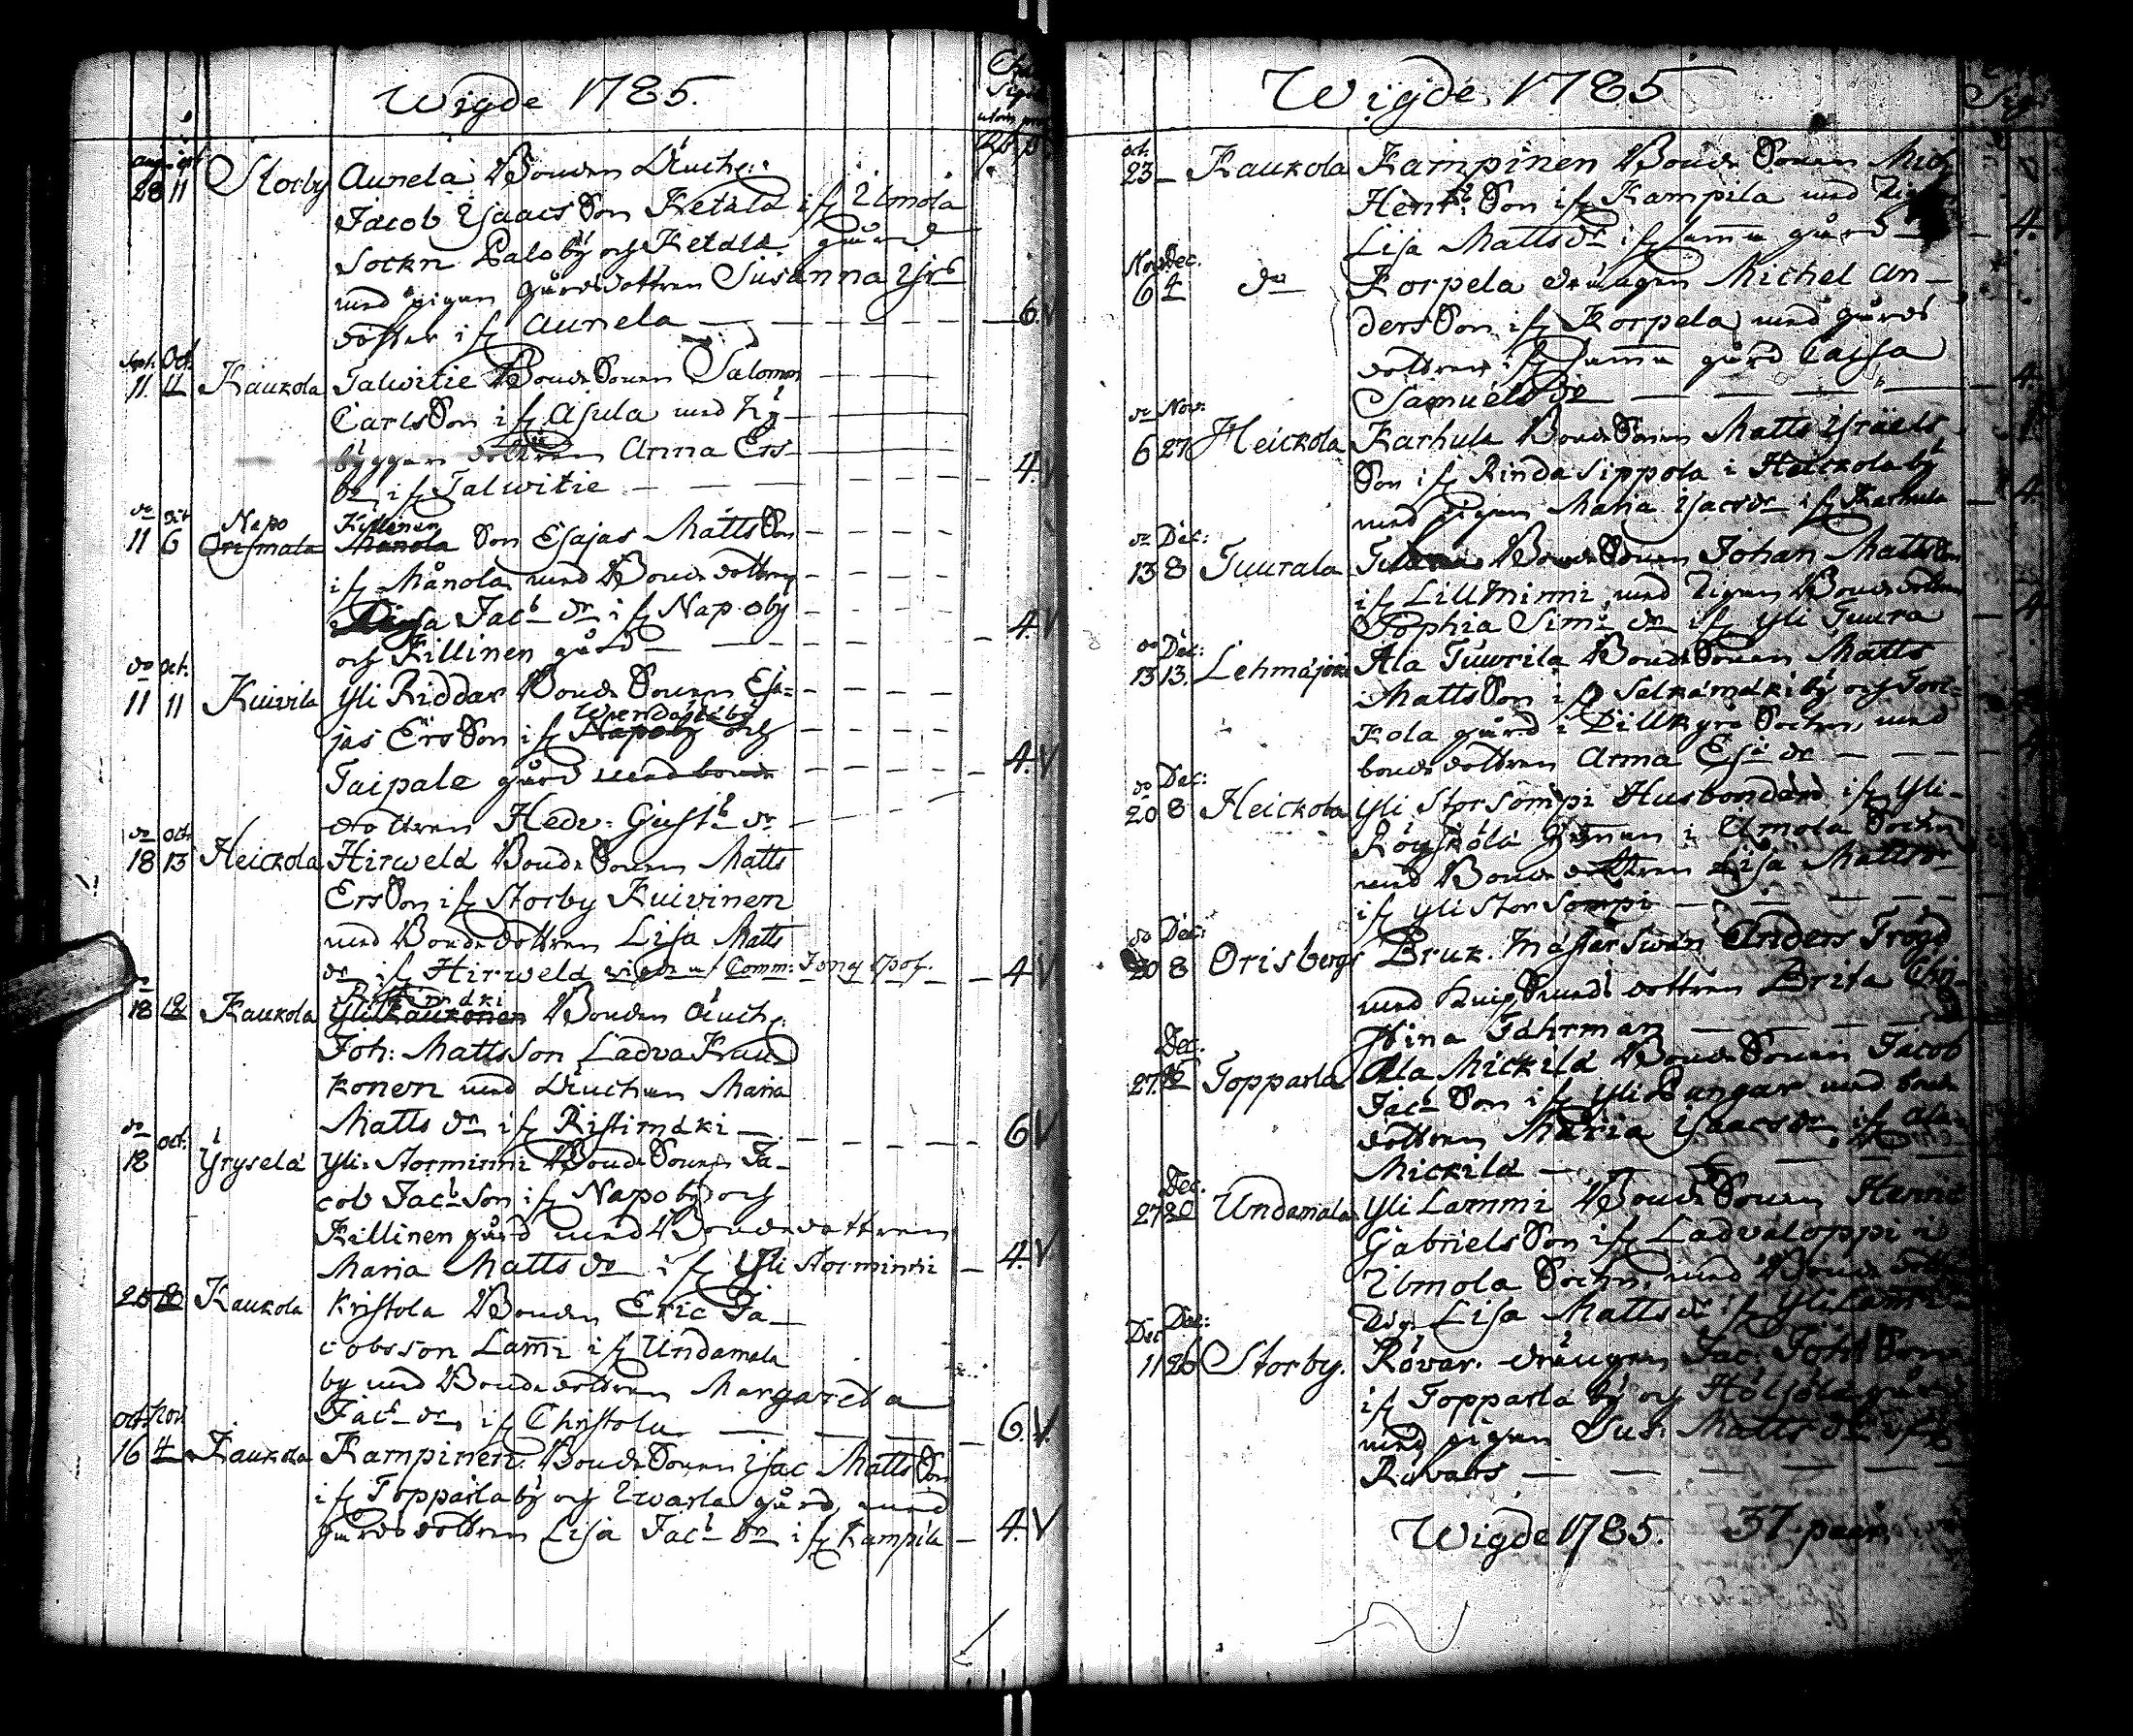 Wigde 1785.
28 11 Storby Aunela Bonden
Jacob Isaacs Son Ketala if Ilmola
Sockn Paloby och Ketala gård
med pigan gårdsdottren Susanna
dotter if Aunela — 6.V
Sept. Oct.
11. 11 Kaukola Talwitie BondeSonen Salomon
Carls Son if Asula med Ny-
byggare dottren Anna Ers-
dr if Talwitie — 4.V
do Oct
Napo Killinen
11 6 Orismala Månola Son Esajas Matts Son
if Månola med Bondedottren
Jacb dr if Napoby
och Killinen gård — 4.V
do Oct.
11 11 Kuivila Yli Riddar BondeSonen Esa-
jas Ers Son if Napoby och
Taipale gård med bonde — 4.V
dottren Hedv: Gustb dr
do Oct.
18 13 Heickola Hirwelä BondeSonen Matts
Ers Son if Storby Kuivinen
med Bondedottren Lisa Matts
dr if Hirwelä — 4V
Ristimäki
18 12 Kaukola Yli Kaukonen Bonden
Joh: Mattsson Ladva Kau
konen med Maria
Matts dr if Ristimäki — 6V
do Oct.
18 Yrysela Yli-Storminni BondeSonen Ja-
cob Jacb Son if Napoby och
Killinen gård med Bondedottren
Maria Matts dr if Yli Storminni — 4.V
25 Kaukola Kristola Bonden Eric Ja-
cobsson Lammi if Undamala
by med Bondedottren Margareta
Jacb dr if Christola — 6.V.
Oct. Nov.
16 4 Kaukola Kampinen BondeSonen Isac Matts Son
if Topparlaby och Iwarla gård, med
gårdsdottren Lisa Jacb dr if Kampila — 4.V
Wigde 1785
Oct.
23 — Kaukola Kampinen BondeSonen Mich
Henr: Son if Kampila med
Lisa Matts dr if samma gård — 4.
Nov. Dec.
6 4 do Korpela drängen Michel An-
ders Son if Korpela med gårds
dottren if samma gård Cajsa
Samuels dr — 4.
do Nov:
6 27 Heickola Karhula BondeSonen Matts Israels
Son if Rinda Sippola i Heickola by
med pigan Maria Isacsdr if Karhula — 4.
do Dec:
13 8 Tuurala BondeSonen Johan Matts Son
if Lill Minni med Pigan Bondedottren
Sophia Sim: dr if Yli Tuura — 4
do Dec:
13 13. Lehmäjoki Ala Tuwrila BondeSonen Matts
Matts Son if Salkämäki by och
kola gård i Lillkyro Sockn, med
bondedottren Anna Esa dr —
do Dec:
20 8 Heickola Yli Stor Sompi Husbonden if Yli-
i Ilmola Sockn
med Bondedottren Lisa Mattsdr
if Yli Stor Sompi —
do Dec:
20 8 Orisberg Bruk. Mästar Swän Anders Trogd
med dottren Brita Chri-
stina Fahrman —
Dec.
27. Topparla Ala Mickila BondeSonen Jacob
Jacb Son if Yli Pangar med bonde
dottren Maria Isaacs dr if Ala-
Mickila —
Dec.
27 20 Undamala Yli Lammi BondeSonen Henric
Gabriels Son if Ladvaloppi i
Ilmola Sockn, med Bonde
Lisa Matts dr if Yli Lammi
Dec Dec:
11 26 Storby. Rövar. drängen Jac: Joh: Son
if Topparla by och
med pigan Sus: Matts dr if
Rövars —
Wigde 1785. 37 paar.